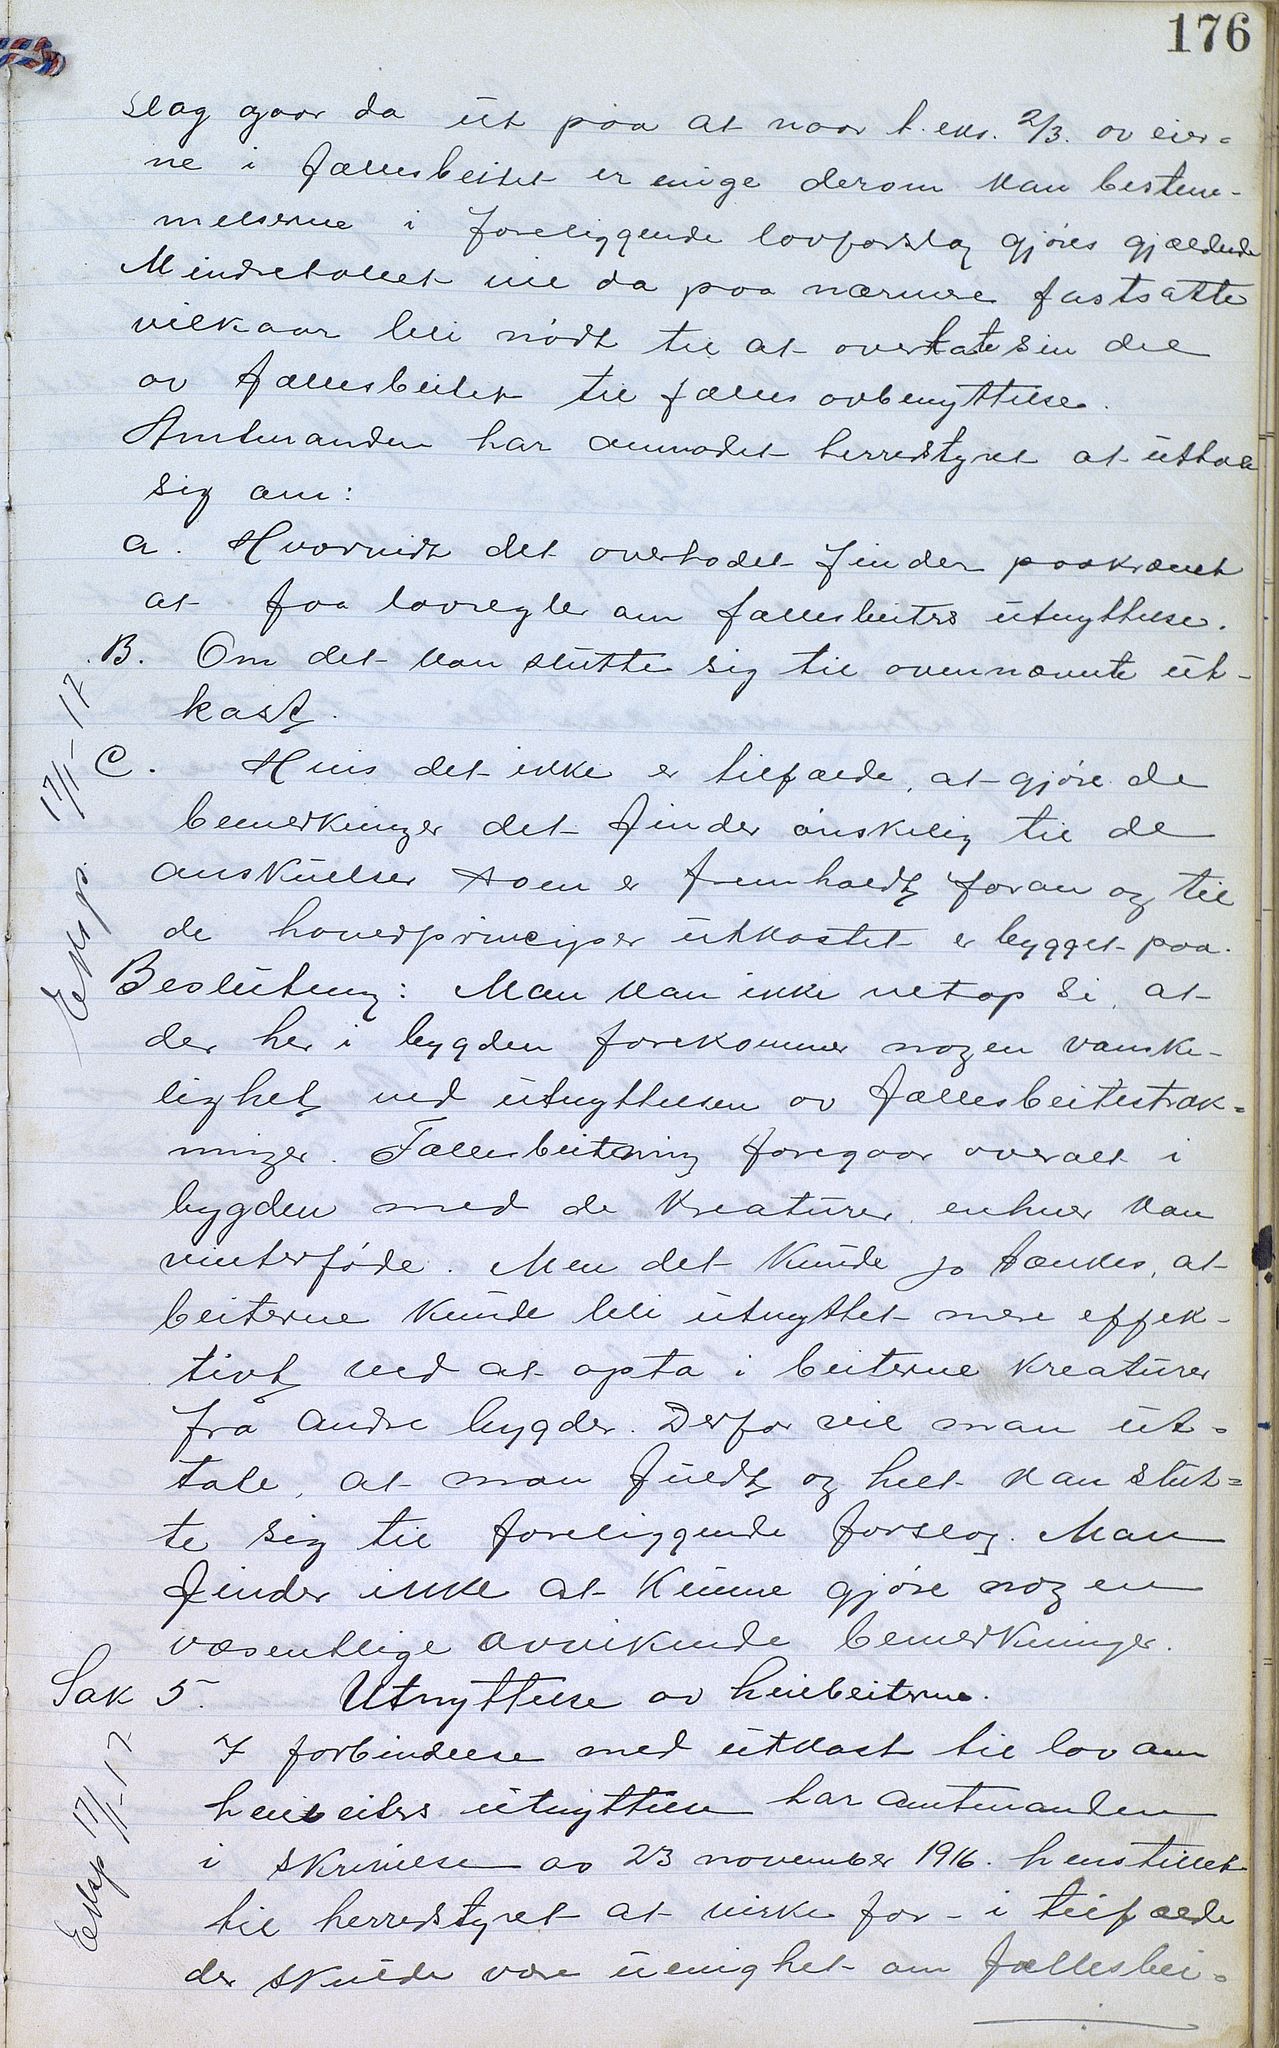 176
slag gaar da ut paa at naar t. eks. 2/3. av eier=
ne i fællesbeitet er enige derom kan bestem-
melserne i foreliggende lovforslag gjøres gjældende
Mindretallet vil da paa nærmere fastsatte
vilkaar bli nødt til at overlate sin del
av fællesbeitet til fælles avbenyttelse.
Amtmanden har anmodet herredstyret at uttale
sig om:
a. Hvorvidt det overhodet finder paakrævet
at faa lovregler om fællesbeiters utnyttelse.
B. Om det kan slutte sig til ovennævnte ut-
kast.
C. Hvis det ikke er tilfælde, at gjøre de
bemerkninger det finder ønskelig til de
anskuelser som er fremholdt foran og til
de hovedprinciper utkastet er bygget paa.
Eksp. 17/1-17
Beslutning: Man kan ikke netop si, at
der her i bygden forekommer nogen vanske-
lighet ved utnyttelsen av fællesbeitestræk=
ninger. Fællesbeitning foregaar overalt i
bygden med de kreaturer, enhver kan
vinterføde. Men det kunde jo tænkes, at
beiterne kunde bli utnyttet mere effek-
tivt ved at opta i beiterne kreaturer
frå andre bygder. Derfor vil man ut=
tale, at man fuldt og helt kan slut=
te sig til foreliggende forslag. Man
finder ikke at kunne gjøre nogen
væsentlige avvikende bemerkninger.
Sak 5. Utnyttelse av heiebeiterne.
I forbindelse med utkast til lov om
heiebeiters utnyttelse har amtmanden
i skrivelse av 23 november 1916. henstillet
til herredstyret at virke for - i tilfælde
der skulde være uenighet om fællesbei=
Eksp 17/1-17